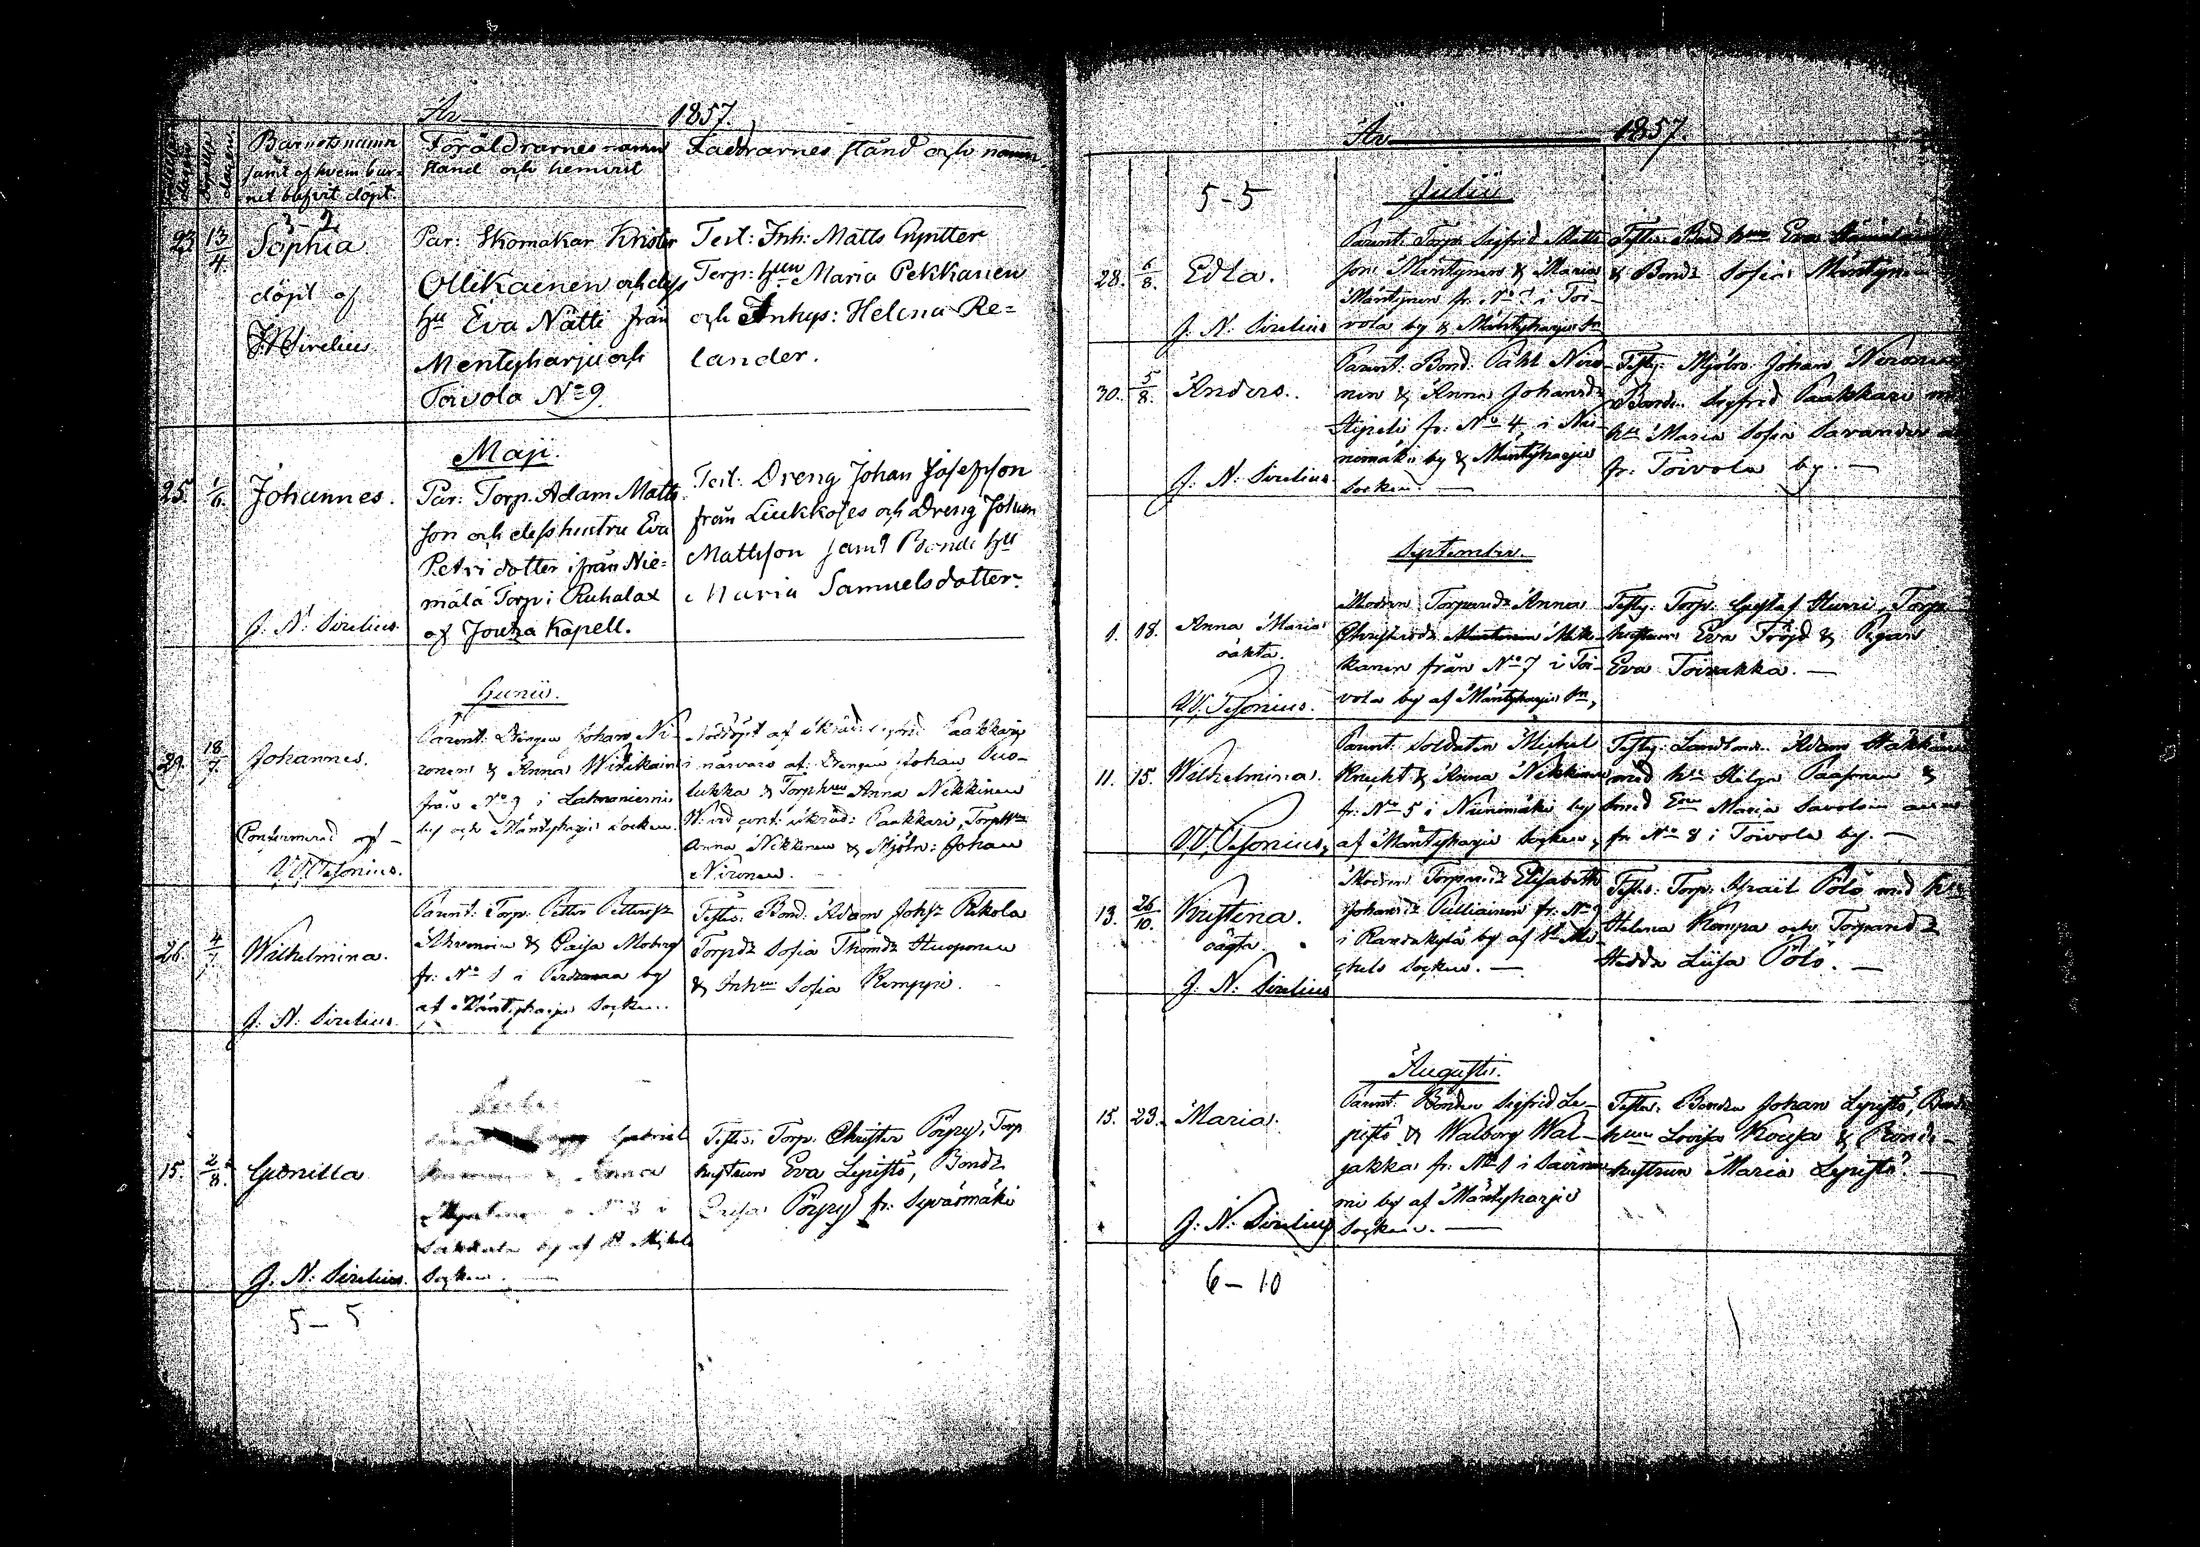 År 1857.
Barnets namn
samt af hvem bar-
net blifvit döpt.
Föräldrarnes namn
stånd och hemvist
Faddrarnes stånd och namn
3 2
23 13/4 Sophia
döpt af
J N Sirelius
Par: Skomakar Krister
Ollikainen och dess
hu Eva Nätti från
Mentyharju och
Toivola No 9
Test: Inh: Matts
Torp: hun Maria Pekkanen
och Inhys: Helena Re=
lander.
Maji.
25. 1/6 Johannes.
J. N. Sirelius.
Par: Torp. Adam Matts
son och dess hustru Eva
Petri dotter ifrån Nie=
mälä Torp i Ruhalax
af Joutza Kapell.
Test: Dreng Johan Josefsson
från Liukkoies och Dreng Johan
Mattsson samt Bonde hu
Maria Samuelsdotter.
Junii.
29. 18/7 Johannes.
Confirmerad af
Parent: Drengen Johan Ni-
ronen & Anna Wirikain
från No 9 i
by och Mäntyharju socken.
Nöddöpt af skräd: Paakkari
i närvaro af: Drengen Johan Puo-
lukka & Torphun Anna Nikkinen
Wid conf: skräd: Paakkari, Torphun
Anna Nikkinen & Mjöln: Johan
Nironen.
26. 4/7 Wilhelmina.
J. N. Sirelius.
Parent: Torp: Petter Pettersson
Ahvenain & Caisa Moberg
fr. No 1 i by
af Mäntyharju Socken.
Testes. Bond. Adam Johss Rikola
Torpdr Sofia Thomdr Huoponen
& Inhun Sofia Remppi.
15. 2/8 Gunilla
J. N. Sirelius.
Gabriel
Anna
No 3 i
by af St Michels
Socken.
Testes. Torp. Christer Pöyry, Torp
hustrun Eva Lepistö, Bondr
Caisa Pöyry fr. Syväsmäki
5 - 5
År 1857.
5 - 5
Julii
28. 6/8. Edla.
J. N. Sirelius
Parent: Torp. Sigfrid Matts
son Mäntynen & Maria
Mäntynen fr. No i Toi-
vola by & Mäntyharju sn
Testes. Bond hun Eva
& Bondr Sofia Mäntynen
30. 5/8. Anders.
J. N. Sirelius
Parent: Bond. Påhl Niro-
nen & Anna Johansdr
fr. No 4 i Nii-
nimäki by & Mäntyharju
Socken.
Testes. Mjöln. Johan Nironen
Bond. Sigfrid Paakkari
hu Maria Sofia Savander
fr. Toivola by.
September.
1. 18. Anna Maria
oäkta.
Modren Torparedr Anna
Christersdr Miti-
kanen från No 7 i Toi-
vola by af Mäntyharju Sn,
Testes. Torp. Gustaf Hurri, Torpa
hustrun Eva Fröjd & Pigan
Eva Toivakka.
11. 15. Wilhelmina.
Parent: Soldaten Michel
Knecht & Anna Nikkinen
fr. No 5 i Niinimäki by
af Mäntyharju Socken,
Testes. Landbond. Adam Häkkinen
med hu Helga Paasonen &
Smed Enn Maria Savolain
fr No 8 i Toivola by.
13. 25/10. Kristina.
oägta.
J. N. Sirelius
Modren Torparedr Elisabeth
Johansdr Pulliainen fr. No 9
i Randakylä by af St Mi-
chels Socken.
Testes. Torp. Israil Pölö med hu
Helena Kompa och Torparedr
Hedda Liisa Pölö.
Augusti.
15. 23. Maria.
J. N. Sirelius
Parent: Bonden Sigfrid Le-
pistö & Walborg Wal-
jakka fr. No 1 i
mi by af Mäntyharju
Socken.
Testes. Bonden Johan Lepistö, Bonde
hun Lovisa Kouja & Bonde-
hustrun Maria Lepistö.
6 - 10